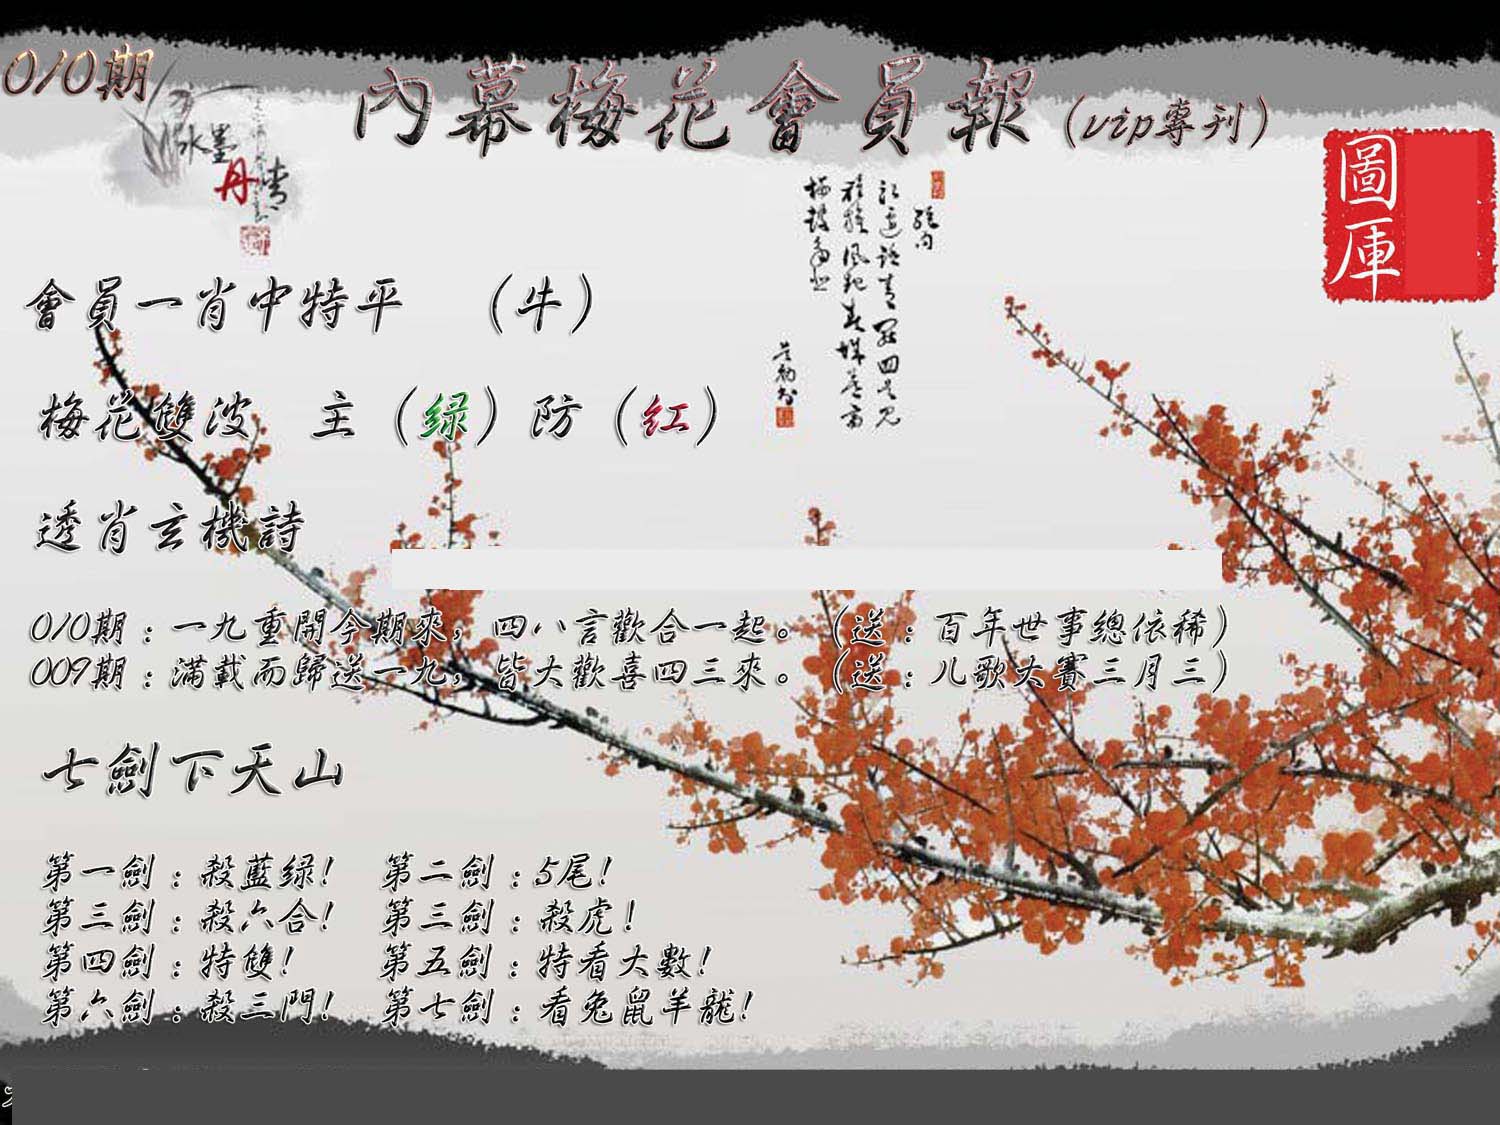 010期
內幕梅花會員報(vip專刊)
水墨
丹青
圖庫
會員一肖中特平 (牛)
梅花雙波 主(绿)防(红)
透肖玄機詩
010期:一九重開今期來,四八言歡合一起。(送:百年世事總依稀)
009期:滿載而歸送一九,皆大歡喜四三來。(送:儿歌大賽三月三)
七劍下天山
第一劍:殺藍绿! 第二劍:5尾!
第三劍:殺六合! 第三劍:殺虎!
第四劍:特雙! 第五劍:特看大數!
第六劍:殺三門! 第七劍:看兔鼠羊龍!